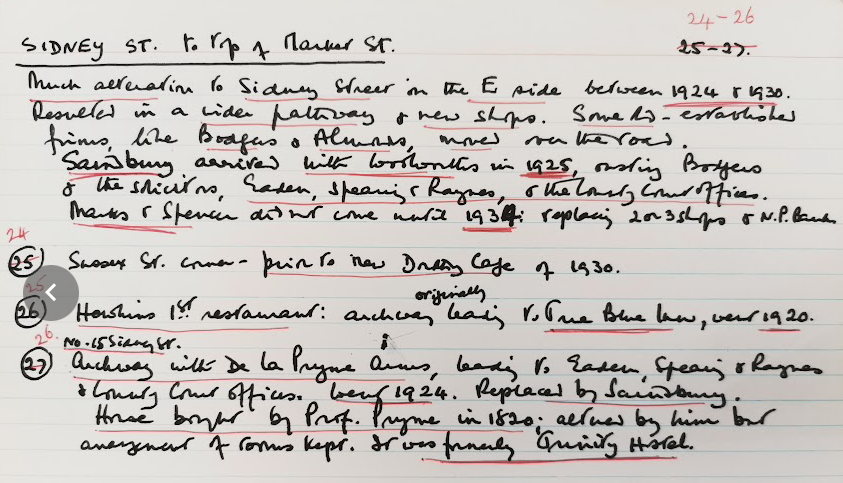 24-26
SIDNEY ST. to top of Market St. 25-27.
Much alteration to Sidney Street on the E side between 1924 & 1930.
Resulted in a wider pathway & new shops. Some old-established
firms, like Bodgers & Almonds, moved over the road.
Sainsbury arrived with Woolworths in 1925, ousting Bodgers
& the solicitors, Eaden, Spearing & Raynes, & the County Court offices.
Marks & Spencer did not come until 1934: replacing 2 or 3 shops & N.P. Bank
24
25 Sussex St. corner - prior to new Dorothy Cafe of 1930.
25
originally
26 Hawkins 1ST restaurant: archway leading to True Blue Inn, went 1920.
26. No. 15 Sidney St.
27 Archway with De La Pryme Arms, leading to Eaden, Spearing & Raynes
& County Court offices. Went 1924. Replaced by Sainsbury.
House bought by Prof. Pryme in 1820; altered by him but
arrangement of rooms kept. It was formerly Trinity Hostel.